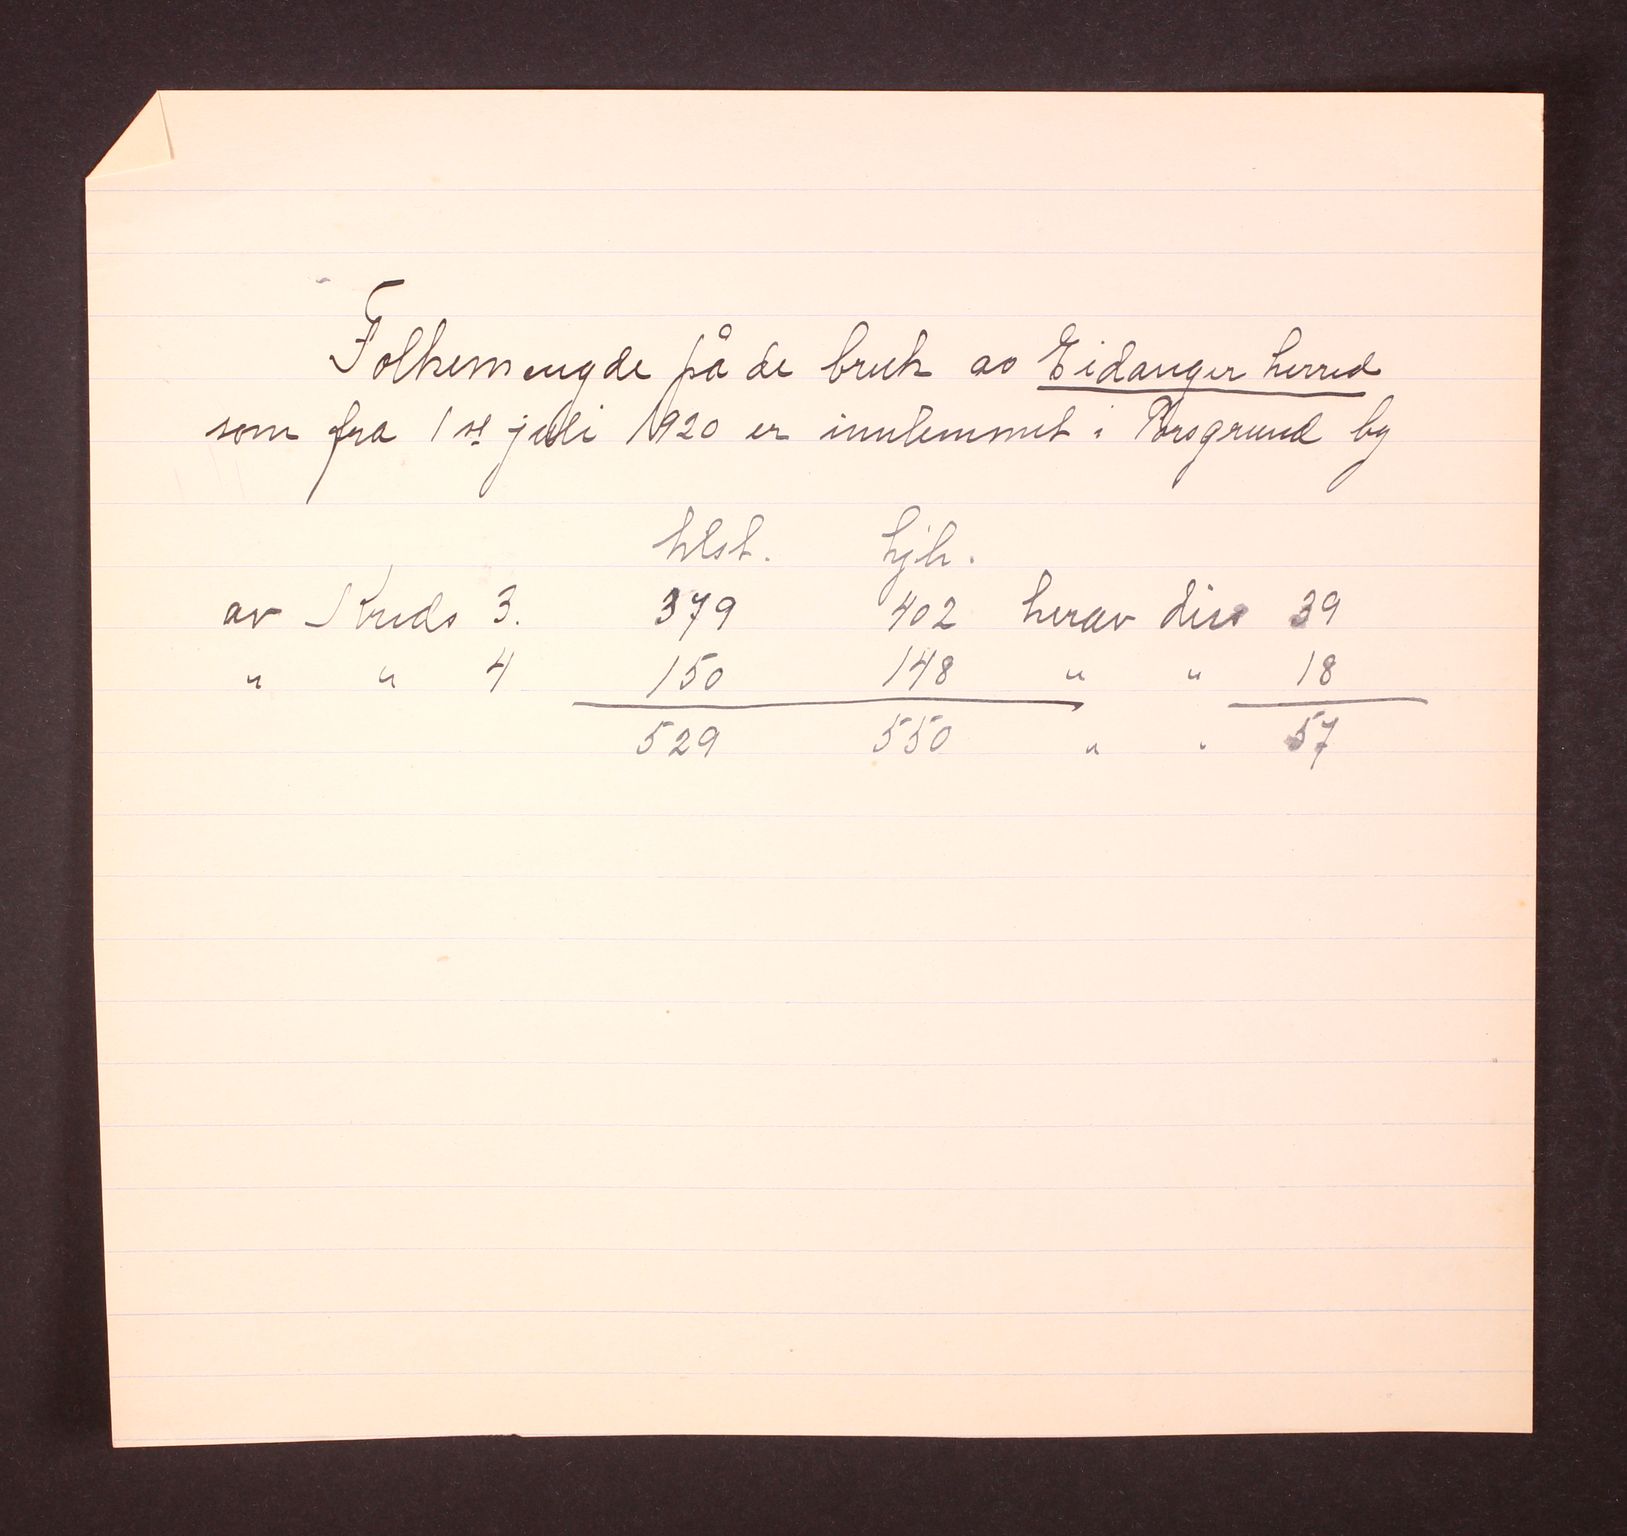 Folkemengde på de bruk av Eidanger herred
som fra 1ste juli 1920 er innlemmet i Porsgrund by
hlst. hjh.
av Kreds 3. 379 402 herav diss 39
" " 4 150 148 " " 18
529 550 " " 57